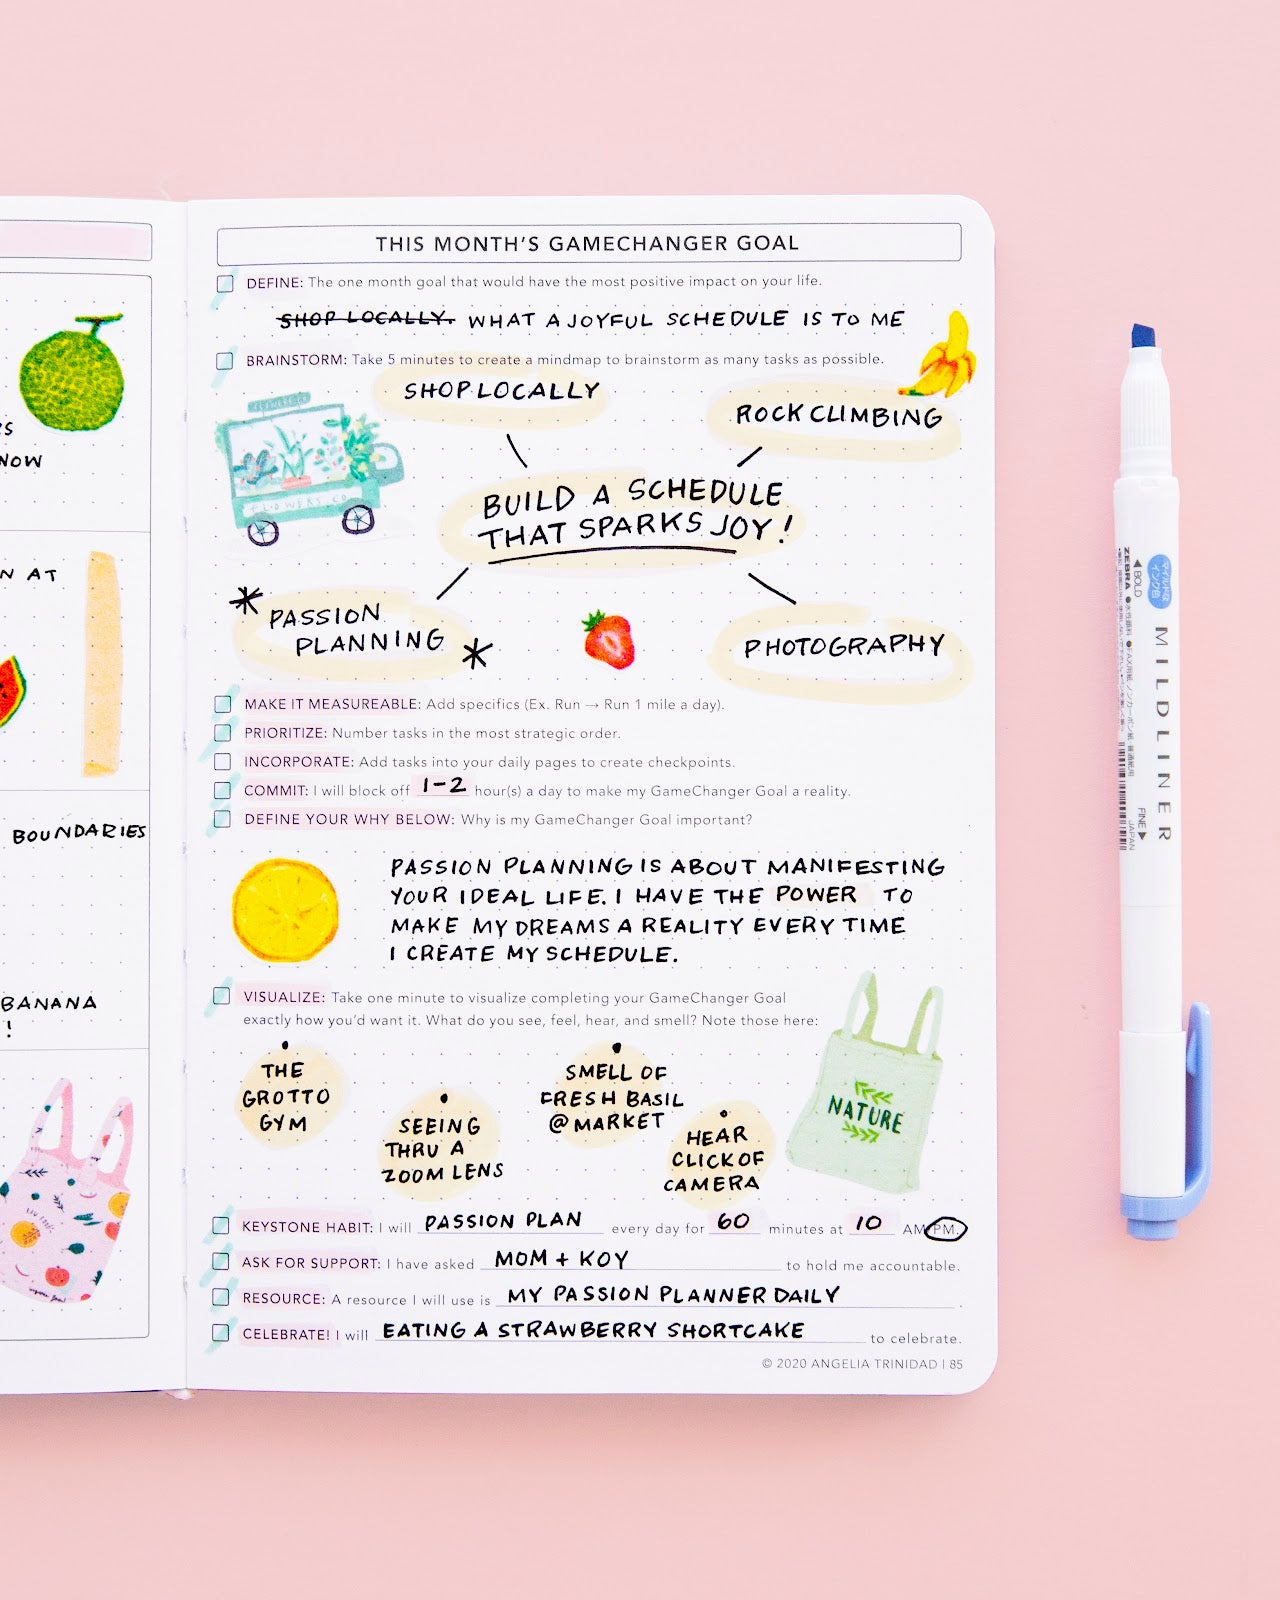 THIS MONTH'S GAMECHANGER GOAL
DEFINE: The one month goal that would have the most positive impact on your life.
SHOP LOCALLY. WHAT A JOYFUL SCHEDULE IS TO ME
BRAINSTORM: Take 5 minutes to create a mindmap to brainstorm as many tasks as possible.
SHOP LOCALLY
ROCK CLIMBING
FLOWERS CO
BUILD A SCHEDULE
THAT SPARKS JOY!
* PASSION
PLANNING *
PHOTOGRAPHY
MAKE IT MEASUREABLE: Add specifics (Ex. Run → Run 1 mile a day).
PRIORITIZE: Number tasks in the most strategic order.
INCORPORATE: Add tasks into your daily pages to create checkpoints.
COMMIT: I will block off 1-2 hour(s) a day to make my GameChanger Goal a reality.
DEFINE YOUR WHY BELOW: Why is my GameChanger Goal important?
PASSION PLANNING IS ABOUT MANIFESTING
YOUR IDEAL LIFE. I HAVE THE POWER TO
MAKE MY DREAMS A REALITY EVERY TIME
I CREATE MY SCHEDULE.
VISUALIZE: Take one minute to visualize completing your GameChanger Goal
exactly how you'd want it. What do you see, feel, hear, and smell? Note those here:
THE
GROTTO
GYM
SEEING
THRU A
ZOOM LENS
SMELL OF
FRESH BASIL
@ MARKET
HEAR
CLICK OF
CAMERA
NATURE
KEYSTONE HABIT: I will PASSION PLAN every day for 60 minutes at 10 AM/PM.
ASK FOR SUPPORT: I have asked MOM + KOY to hold me accountable.
RESOURCE: A resource I will use is MY PASSION PLANNER DAILY.
CELEBRATE! I will EATING A STRAWBERRY SHORTCAKE to celebrate.
© 2020 ANGELIA TRINIDAD | 85
NOW
N AT
BOUNDARIES
BANANA
!
◀ BOLD
ZEBRA
MILDLINER
FINE ▶
JAPAN